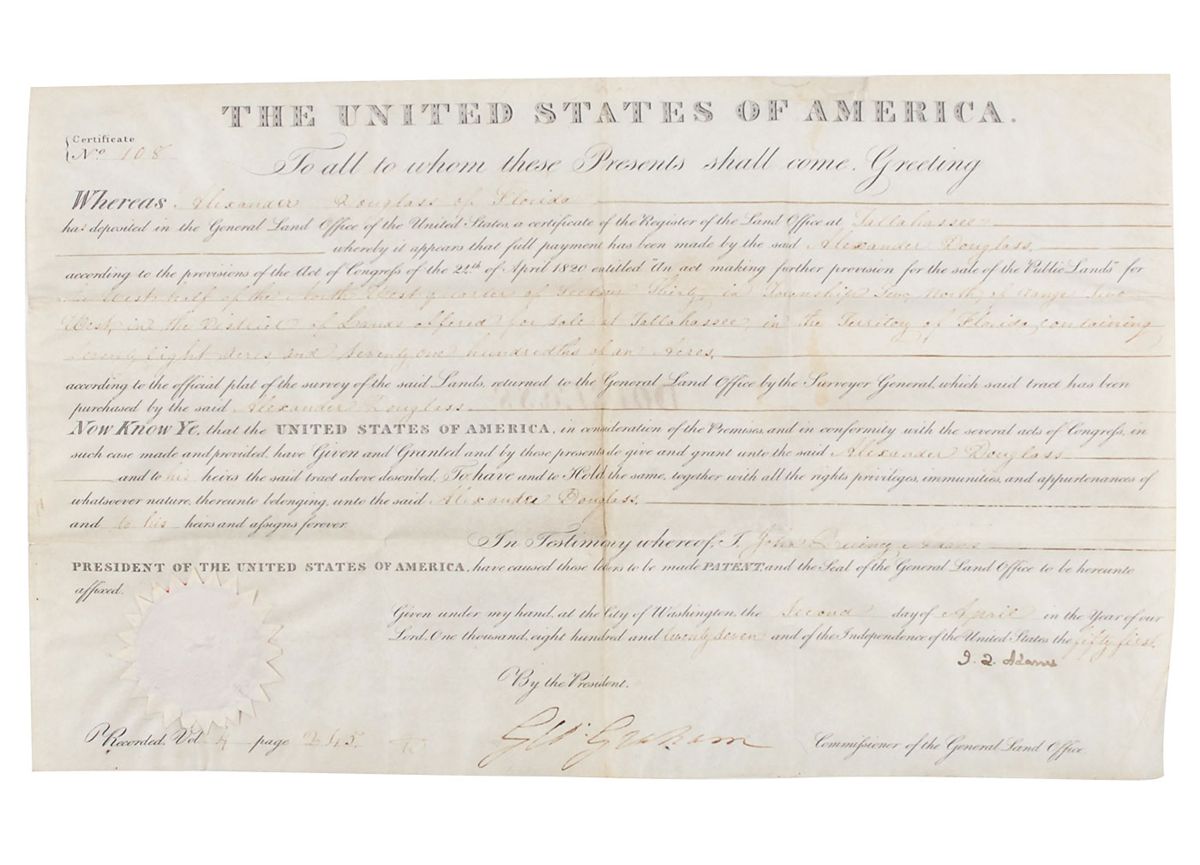 THE UNITED STATES OF AMERICA.
Certificate
No 108
To all to whom these Presents shall come, Greeting
Whereas Alexander Douglass of Florida
has deposited in the General Land Office of the United States, a certificate of the Register of the Land Office at Tallahassee
whereby it appears that full payment has been made by the said Alexander Douglass,
according to the provisions of the Act of Congress of the 24th of April 1820 entitled "An act making further provision for the sale of the Public Lands" for
the West half of the North West quarter of Section Thirty in Township Two North, of range Two
West, in the District of Lands offered for sale at Tallahassee, in the Territory of Florida, containing
eight acres and seventy one hundredths of an Acres,
according to the official plat of the survey of the said Lands, returned to the General Land Office by the Surveyor General, which said tract has been
purchased by the said Alexander Douglass
Now Know Ye, that the UNITED STATES OF AMERICA, in consideration of the Premises, and in conformity with the several acts of Congress, in
such case made and provided, have Given and Granted and by these presents do give and grant unto the said Alexander Douglass
and to his heirs the said tract above described, To have and to Hold the same, together with all the rights, privileges, immunities, and appurtenances of
whatsoever nature, thereunto belonging, unto the said Alexander Douglass,
and to his heirs and assigns forever.
In Testimony whereof, I, John Quincy Adams
PRESIDENT OF THE UNITED STATES OF AMERICA, have caused these letters to be made PATENT, and the Seal of the General Land Office to be hereunto
affixed.
Given under my hand, at the City of Washington, the Second day of April in the Year of our
Lord, One thousand, eight hundred and twenty seven and of the Independence of the United States the fifty first.
J. Q. Adams
By the President.
Recorded, Vol 4 page 245
Geo: Graham Commissioner of the General Land Office